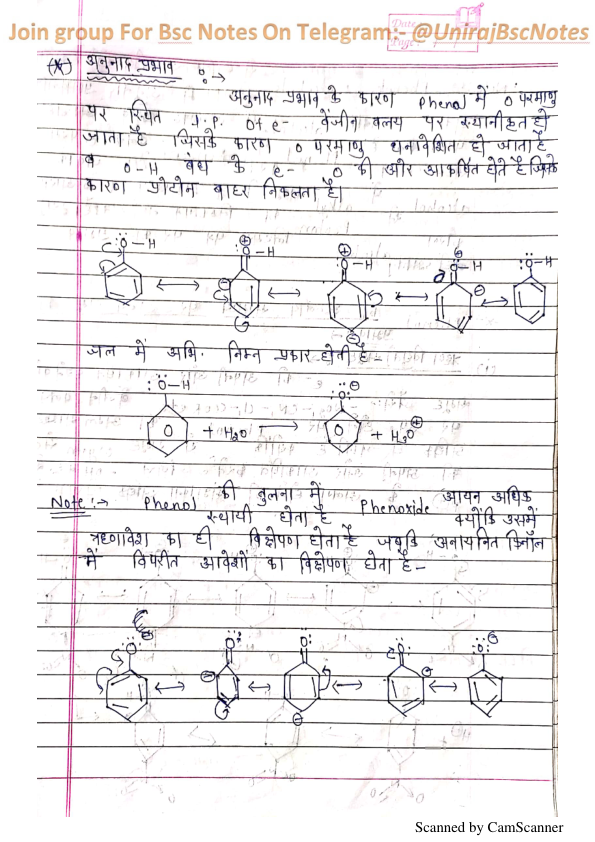 Join group For Bsc Notes On Telegram:- @UnirajBscNotes
Date
Page
(*) अनुनाद प्रभाव :→
अनुनाद प्रभाव के कारण Phenol में O परमाणु
पर स्थित l.p. of e- बेंजीन वलय पर स्थानीकृत हो
जाता है जिसके कारण O परमाणु धनावेशित हो जाता है
व O-H बंध के e- O की ओर आकर्षित होते है जिसके
कारण प्रोटोन बाहर निकलता है।
:O-H ⊕ O-H ⊕ O-H ⊕ O-H :O-H
⊖ ⊖ ⊖
जल में अभि. निम्न प्रकार होती है -
:O-H :O: ⊖
+ H2O → + H3O ⊕
Note :→ Phenol की तुलना में Phenoxide आयन अधिक
स्थायी होता है क्योंकि उसमें
ऋणावेश का ही विक्षेपण होता है जबकि अनायनित फिनॉल
में विपरीत आवेशों का विक्षेपण होता है -
:O: ⊖ O: O: O: :O: ⊖
⊖ ⊖ ⊖
Scanned by CamScanner